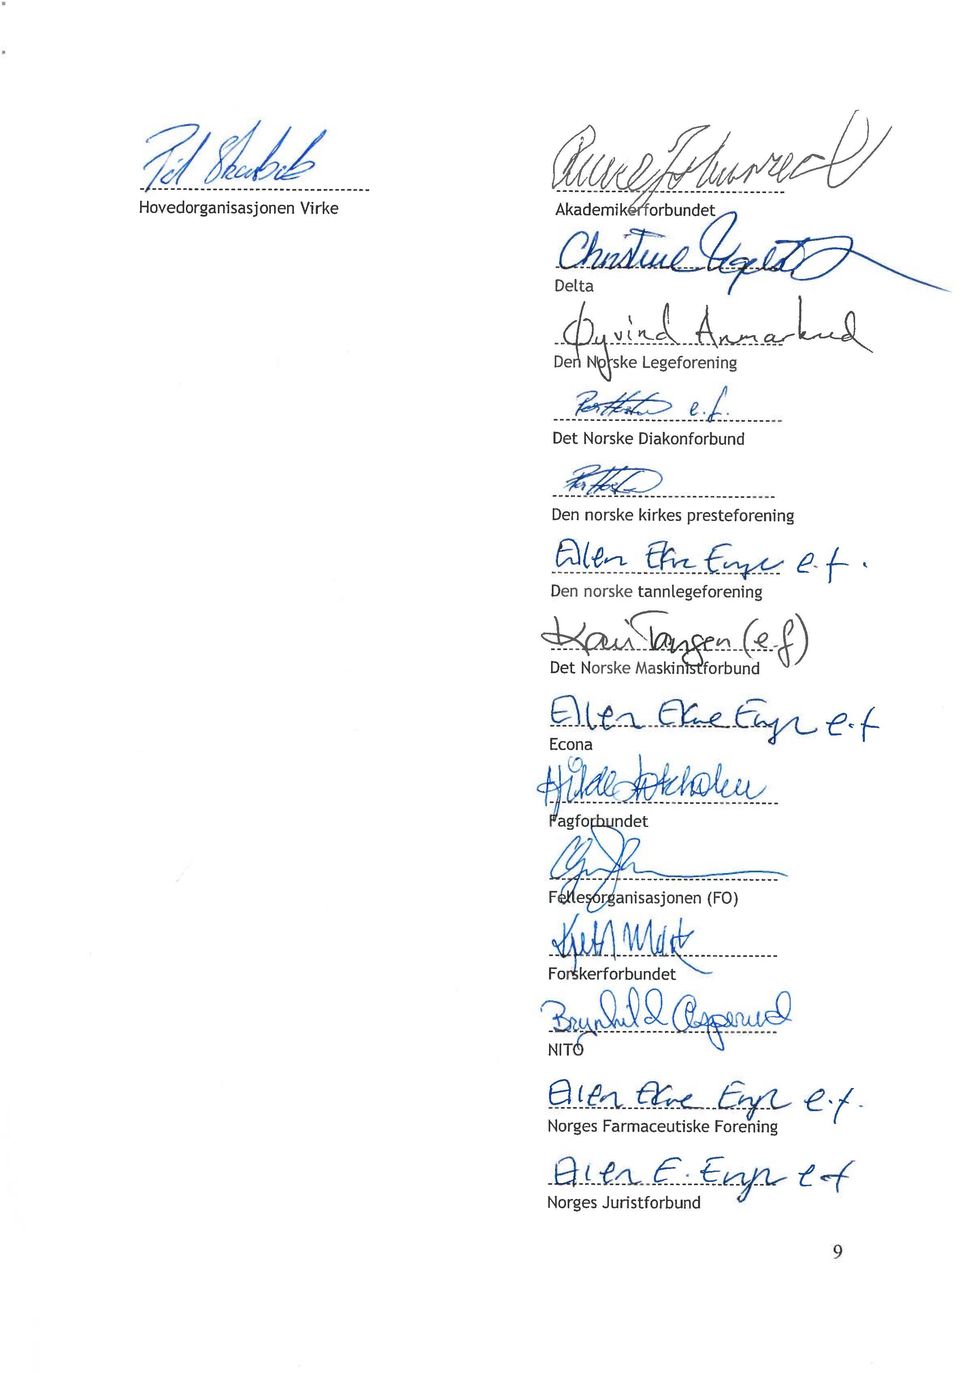 Hovedorganisasjonen Virke
Akademikerforbundet
Christine
Delta
Øyvind Anmarkrud
Den Norske Legeforening
e.f.
Det Norske Diakonforbund
Den norske kirkes presteforening
Ellen e.f.
Den norske tannlegeforening
Kai Tangen (e.f)
Det Norske Maskinistforbund
Ellen e.f
Econa
Hilde
Fagforbundet
Fellesorganisasjonen (FO)
Forskerforbundet
Brynhild Asperud
NITO
Ellen e.f.
Norges Farmaceutiske Forening
Ellen E. e f
Norges Juristforbund
9